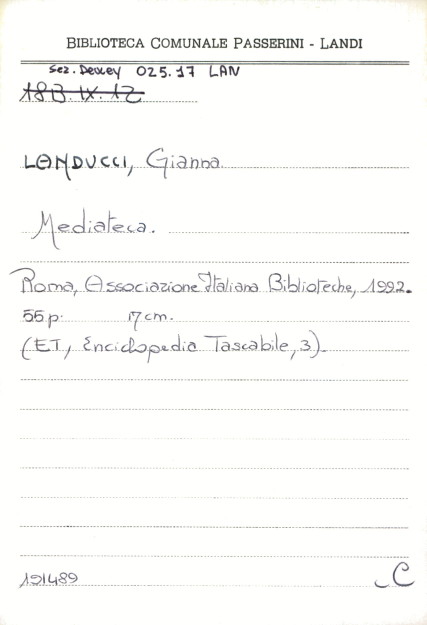 BIBLIOTECA COMUNALE PASSERINI - LANDI
Sez. Dewey 025.17 LAN
183.IX.12
LANDUCCI, Gianna
Mediateca.
Roma, Associazione Italiana Biblioteche, 1992.
55 p. 17 cm.
(ET, Enciclopedia Tascabile, 3).
191489
C